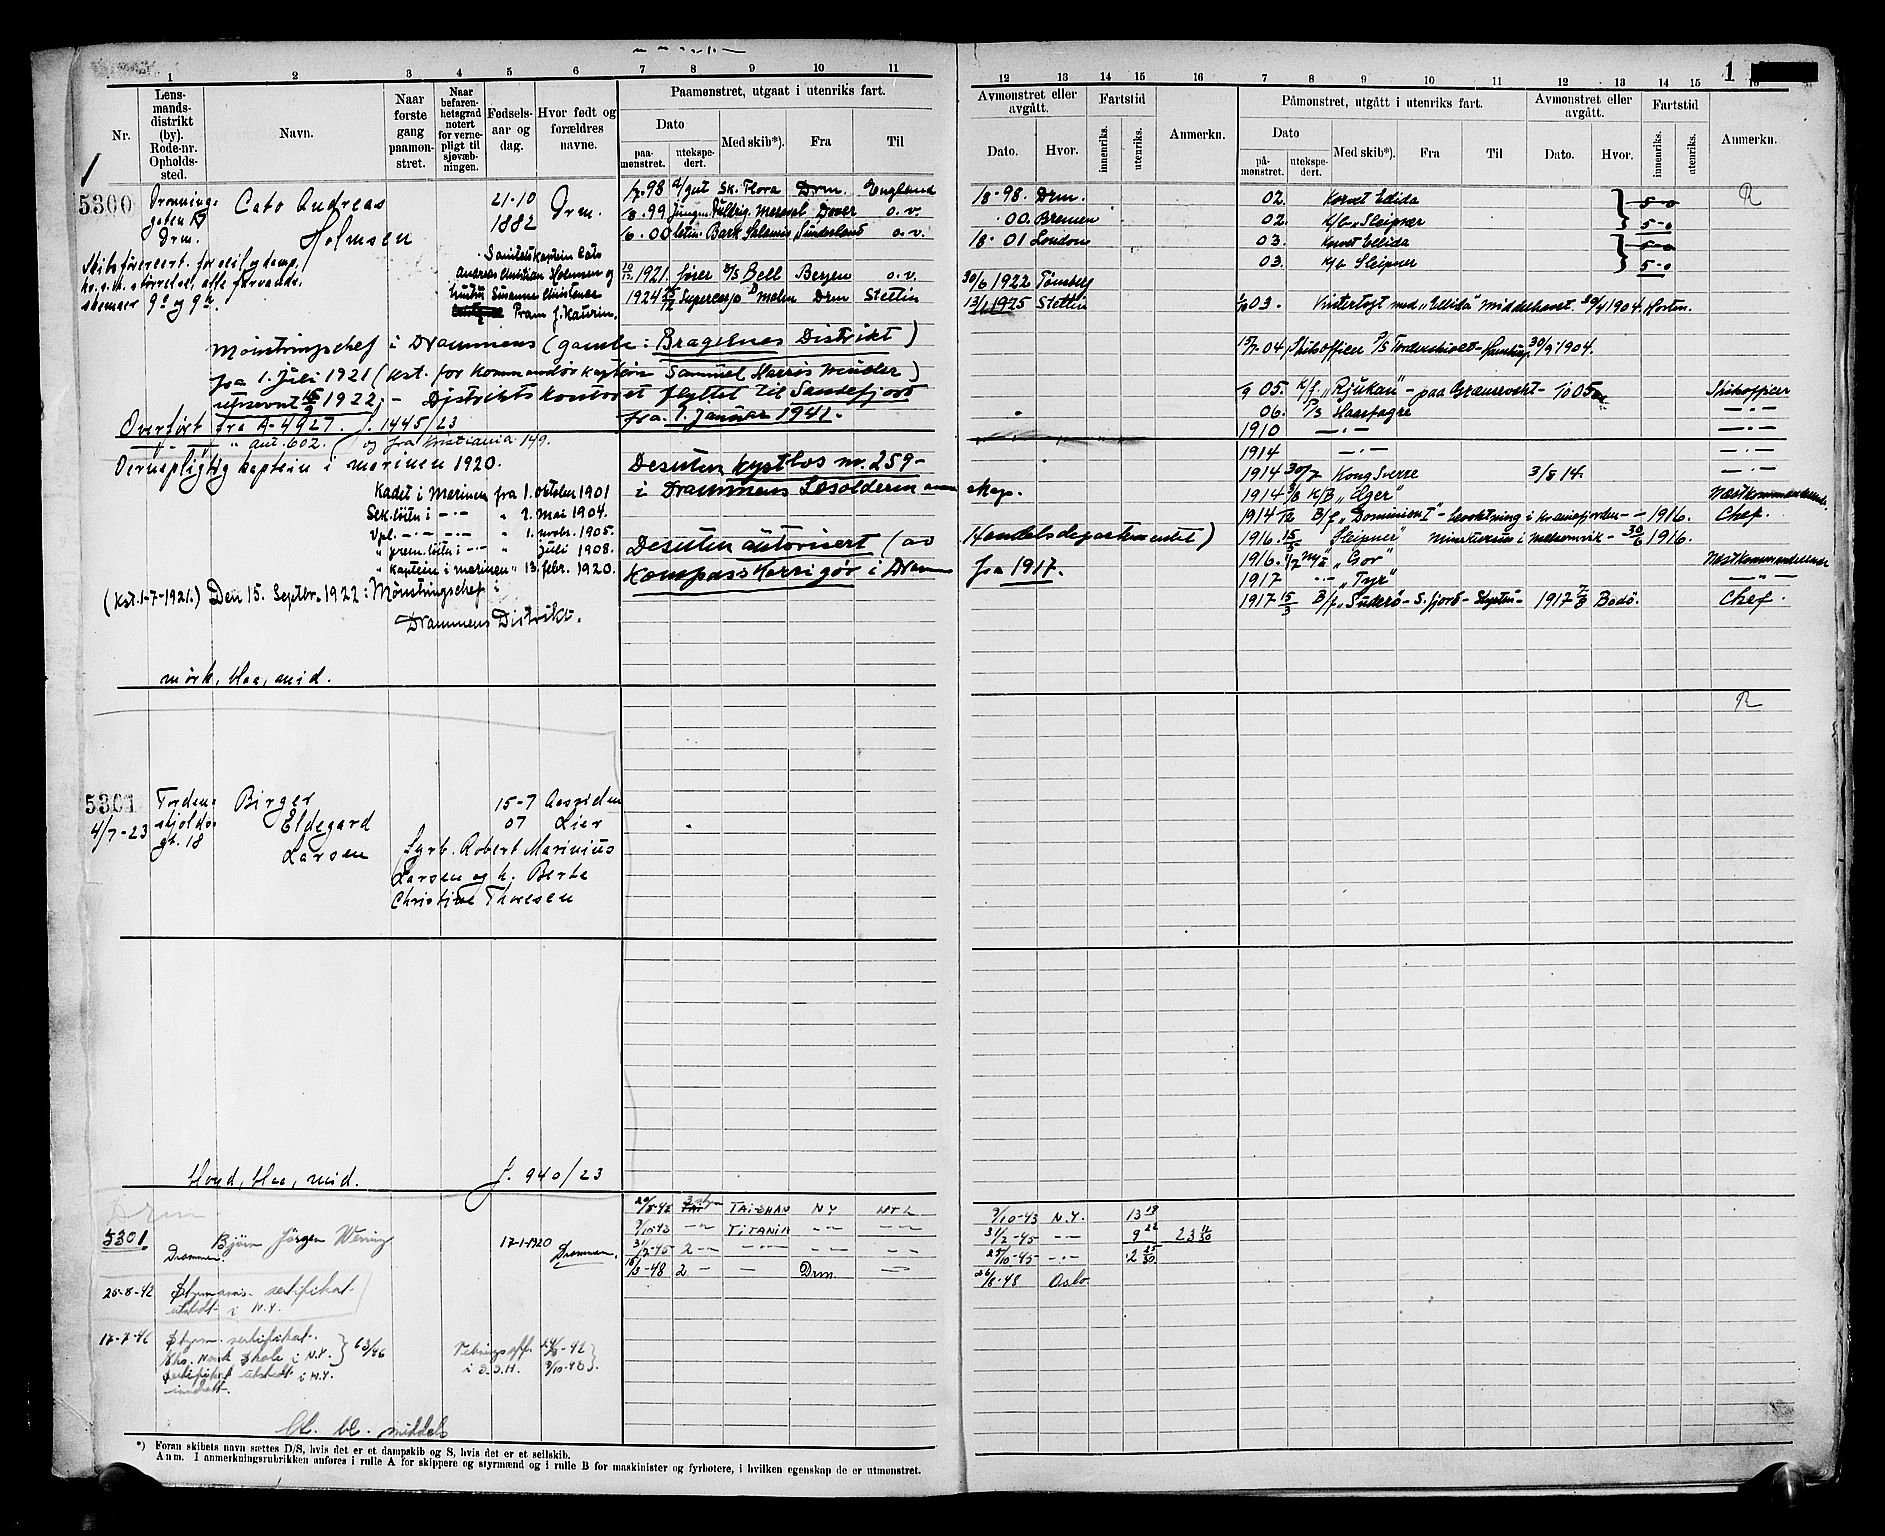 1 2 3 4 5 6 7 8 9 10 11 12 13 14 15 16 7 8 9 10 11 12 13 14 15 16
1
Nr.
Lensmandsdistrikt (by). Rode-nr. Opholdssted.
Navn.
Naar første gang paamønstret.
Naar befarenhetsgrad notert for vernepligt til sjøvæbningen.
Fødselsaar og dag.
Hvor født og forældres navne.
Paamønstret, utgaat i utenriks fart.
Dato
paamønstret.
utekspedert.
Med skib*).
Fra
Til
Avmønstret eller avgått.
Dato.
Hvor.
Fartstid
innenriks.
utenriks.
Anmerkn.
Påmønstret, utgått i utenriks fart.
Dato
påmønstret.
utekspedert.
Med skib*).
Fra
Til
Avmønstret eller avgått.
Dato.
Hvor.
Fartstid
innenriks.
utenriks.
Anmerkn.
1
5300
Dronningegaten
Drm.
Cato Andreas
Holmsen
21-10
1882
Drm.
98 Sk. Flora Drm. England
98 Drm.
99 Dover o. v.
00. Bremen
00 Bark Salamis Sunderland o. v.
01 London
Sanitetskaptein Cato
Andreas Christian Holmsen og
hustru Susanne Christence
Pram f. Kaurin.
1921. fører D/S Bell Bergen o. v.
30/6 1922 Tønsberg
1924 Supercargo Drm Stettin
1925 Stettin
02. Korvet Ellida
5-0
R
02. K/b. Sleipner
5-0
03. Korvet Ellida
5-0
03. K/b Sleipner
5-0
03. Vintertogt med "Ellida" Middelhavet. 30/4 1904. Horten.
04 Skibsofficer D/S Tordenskiold - Hamburg 30/9 1904.
05. "Rjukan" - paa Grænsevagt - 05
Skibsofficer
06. P/S Haarfagre
-"-
1910 -"-
1914 -"-
1914 30/7 Kong Sverre 3/8 14.
1914 3/8 K/B "Æger"
Næstkommanderende
1914 B/f "Dominion I" - bevoktning i Kranefjorden - 1916.
Chef.
1916. 15/3 "Sleipner" 30/6 1916.
1916. "Gor"
Næstkommanderende
1917 -"- "Tyr"
-"-
1917 15/3 B/f "Suderø" - S. fjord - 1917 Bodø.
Chef.
Mønstringschef i Drammens (gamle: Bragernes Distrikt)
fra 1. Juli 1921 (kst. for Kommandørkaptein Samuel Harris Winder)
utnevnt 15/9 1922. - Distriktskontoret flyttet til Sandefjord
fra 1. Januar 1941.
Overført fra A-4927. J. 1445/23
" Ant. 602. og fra Kristiania 149.
Vernepligtig kaptein i marinen 1920.
Kadet i Marinen fra 1. oktober 1901
Sek. løitn i -"- " 1. mai 1904.
Vpl. -"- " 1. novbr. 1905.
" prem. løitn i -"- " juli 1908.
" kaptein i marinen " 13. febr. 1920.
(Kst. 1-7-1921.) Den 15. Septbr. 1922: Mønstringschef i
Drammens Distrikt.
Desuten kystlos nr. 259 -
i Drammens Losoldermannskap.
Desuten autorisert (av Handelsdepartementet)
Kompasskorrigør i Drammen fra 1917.
mørk, blaa, mid.
R
5301
4/7-23
Tordenskjoldsgt. 18
Birger
Eldegard
Larsen
15-7
07
Lier
Fyrb. Robert Marinius
Larsen og h. Berte
Christine Thoresen
blond, blaa, mid. J. 940/23
Drm
5301
Drammen.
Bjørn Jörgen Wering
17-1-1920
Drammen.
42 TAI-SHAN NY
3/10-43 N.Y. 13
3/10-43 -"- TITANIA -"- -"-
31/2-45 -"- 9
23
45 2 -"- -"- -"- -"-
25/10-45 -"- 2
48 2 -"- Drm
48 Oslo
25-8-42 Styrmanns-sertifikat
utstedt i N.Y.
17-7-46 Styrm. sertifikat.
Norsk Skole i N.Y. 63/46
sertifikat utstedt i N.Y.
42
3/10-43
bl. bl. middels
*) Foran skibets navn sættes D/S, hvis det er et dampskib og S, hvis det er et seilskib.
Anm. I anmerkningsrubrikken anføres i rulle A for skippere og styrmænd og i rulle B for maskinister og fyrbøtere, i hvilken egenskap de er utmønstret.